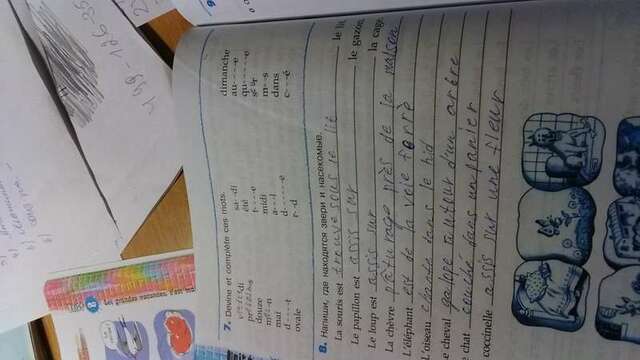 499-126-35
7. Devine et complète ces mots.
vendredi sa--di dimanche
printemps été au----e
douze t----e qu-----e
matin midi sœur
mai a---l m--s
d----t d------e dans
ovale r--d c---é
8. Напиши, где находятся звери и насекомые.
La souris est trouve sous le lit le lit.
Le papillon est assis sur le gazon.
Le loup est assis sur la cage.
La chèvre pâturage près de la maison
L'éléphant est de la voie ferrè
L'oiseau chante dans le nid
e cheval galope autour d'un arbre
e chat couché dans un panier
coccinelle assis sur une fleur